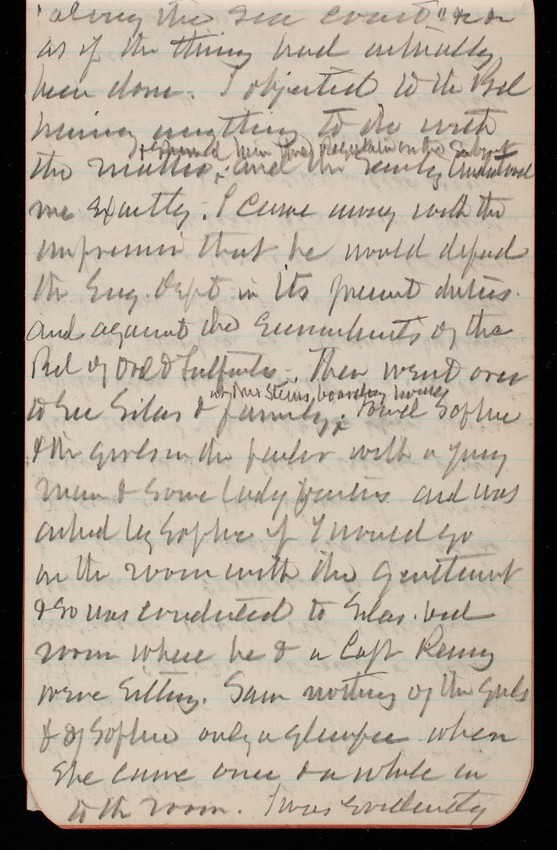 along the sea coast" & or
as if the thing had actually
been done. I objected to the Bd
having anything to do with
& opened him
the matter, and the Secty
me exactly. I came away with the
impression that he would defend
the Eng. Dept in its present duties
and against the encroachments of the
Bd of Ord & Fortfs. Then went over
at Mrs Steins, boarding house
to see Silas & family. Found Sophie
& the girls in the parlor with a young
man & some lady and was
asked by Sophie if I would go
in the room with the gentlemen
& so was conducted to Silas' bed
room where he & a Capt
were sitting. Saw nothing of the girls
& of Sophie only a glimpse when
she came once in a while in
to the room. I was evidently